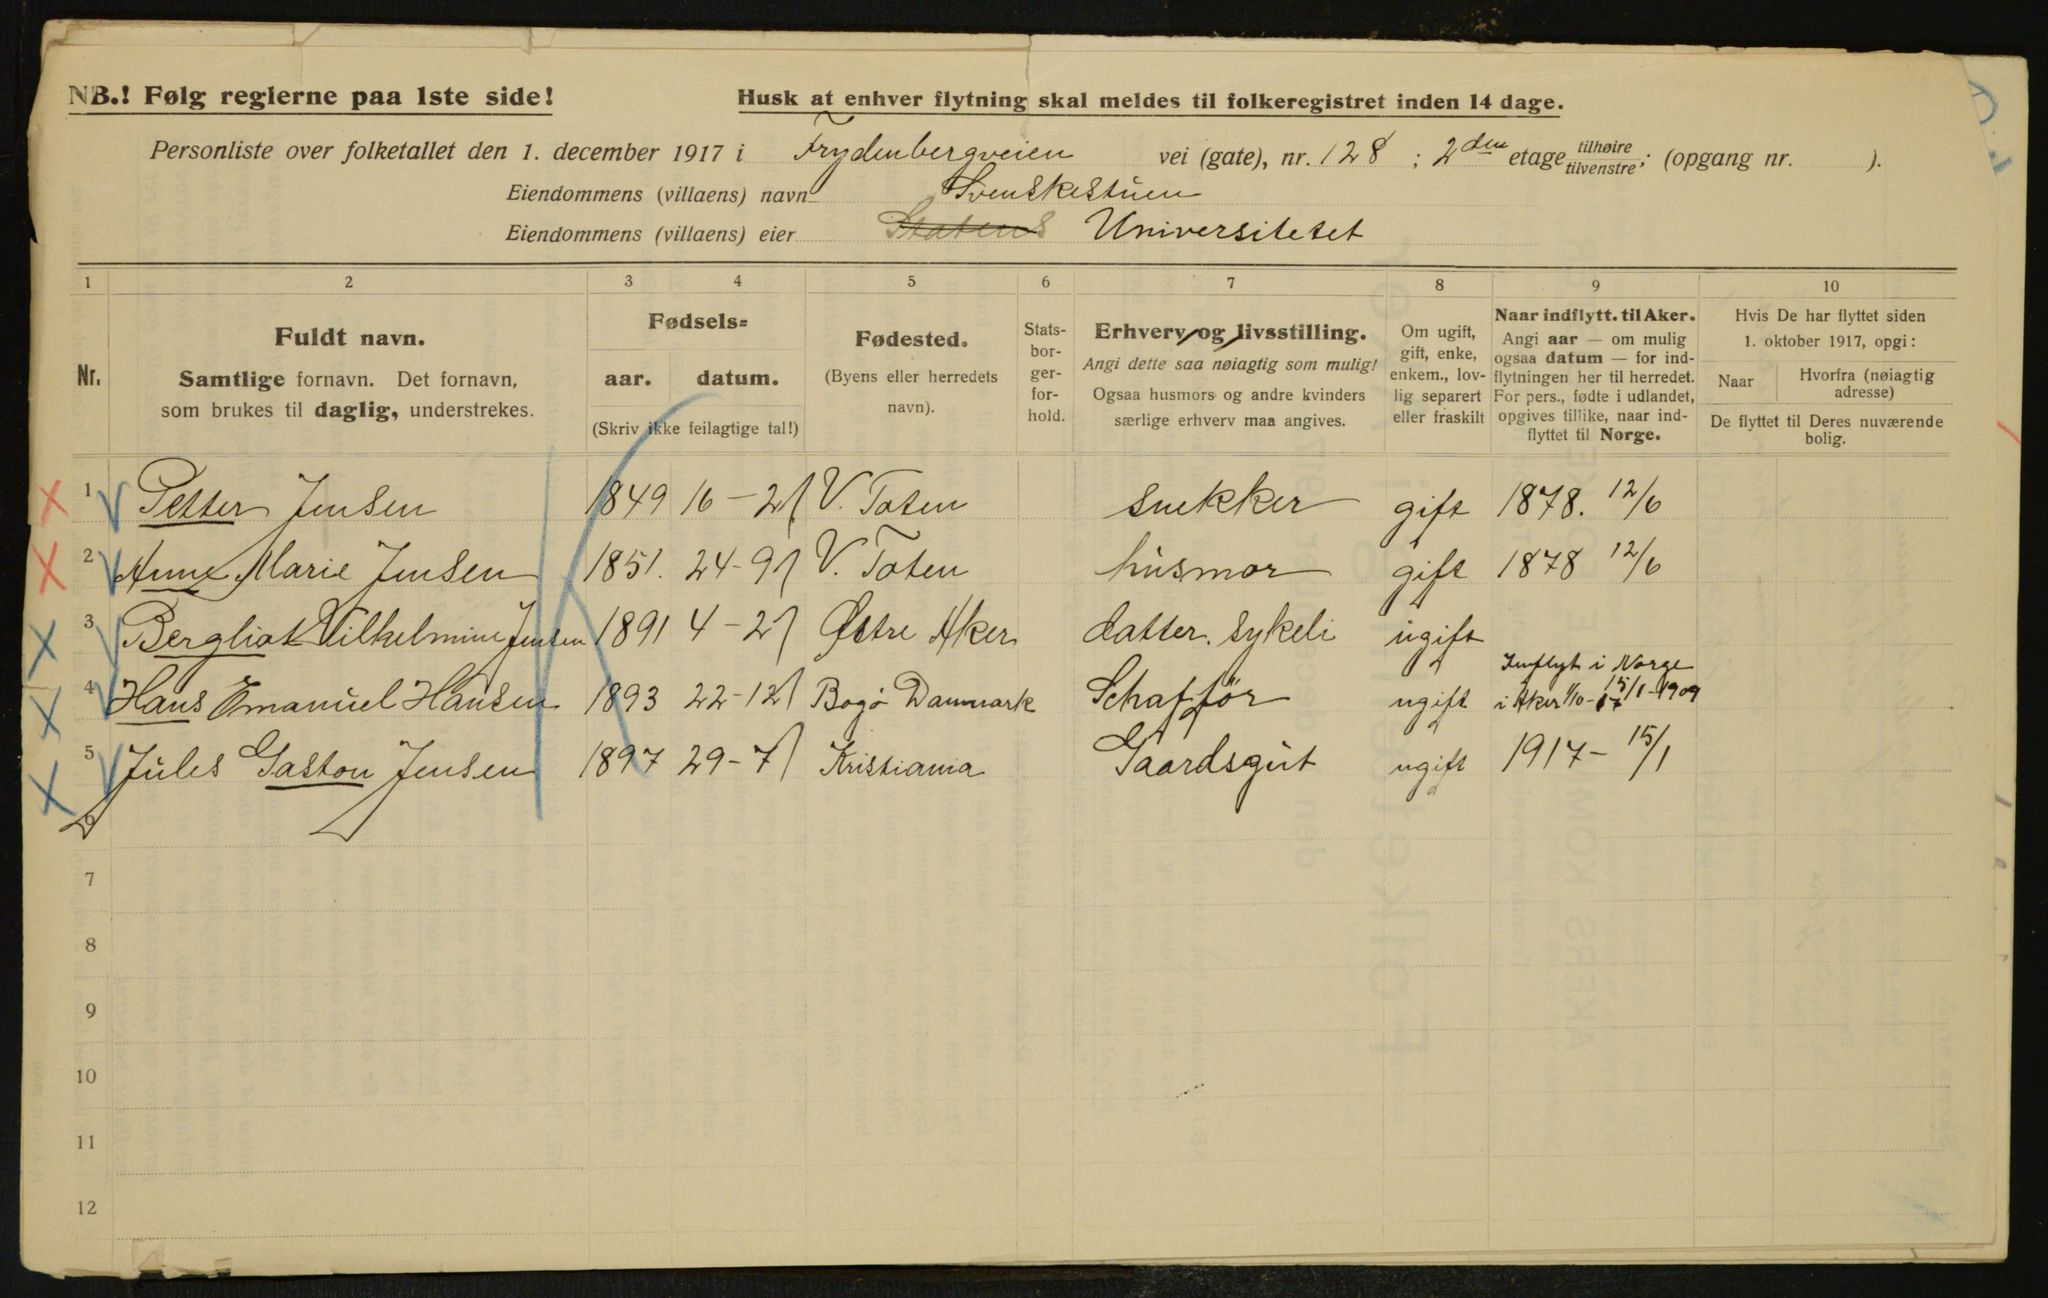 NB.! Følg reglerne paa 1ste side!
Husk at enhver flytning skal meldes til folkeregistret inden 14 dage.
Personliste over folketallet den 1. december 1917 i Frydenbergveien vei (gate), nr. 128 ; 2den etage tilhøire tilvenstre; (opgang nr. ).
Eiendommens (villaens) navn Svenskestuen
Eiendommens (villaens) eier Statens Universitetet
1 2 3 4 5 6 7 8 9 10
Nr.
Fuldt navn.
Samtlige fornavn. Det fornavn,
som brukes til daglig, understrekes.
Fødsels=
aar. datum.
(Skriv ikke feilagtige tal!)
Fødested.
(Byens eller herredets
navn).
Stats-
bor-
ger-
for-
hold.
Erhverv og livsstilling.
Angi dette saa nøiagtig som mulig!
Ogsaa husmors og andre kvinders
særlige erhverv maa angives.
Om ugift,
gift, enke,
enkem., lov-
lig separert
eller fraskilt
Naar indflytt. til Aker.
Angi aar — om mulig
ogsaa datum — for ind-
flytningen her til herredet.
For pers., fødte i udlandet,
opgives tillike, naar ind-
flyttet til Norge.
Hvis De har flyttet siden
1. oktober 1917, opgi:
Naar
Hvorfra (nøiagtig
adresse)
De flyttet til Deres nuværende
bolig.
1 Petter Jensen 1849 16-2 V. Toten snekker gift 1878. 12/6
2 Anne Marie Jensen 1851. 24-9 V. Toten husmor gift 1878 12/6
3 Bergliot Vilhelmine Jensen 1891 4-2 Østre Aker datter. sykeli ugift
4 Hans Emanuel Hansen 1893 22-12 Bogö Danmark Schafför ugift Innflyt i Norge
i Aker 1/10-17 15/1-1909
5 Jules Gaston Jensen 1897 29-7 Kristiania Gaardsgut ugift 1917- 15/1
6
7
8
9
10
11
12